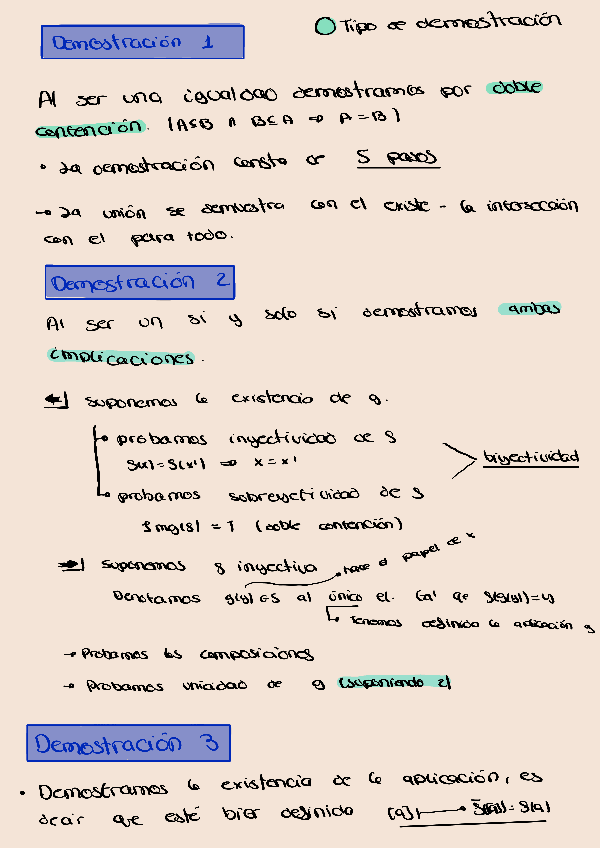 Demostración 1
Tipo de demostración
Al ser una igualdad demostramos por doble
contención. (A⊆B ∧ B⊆A ⇒ A=B)
• La demostración consta de 5 pasos
→ La unión se demuestra con el existe - la intersección
con el para todo.
Demostración 2
Al ser un si y solo si demostramos ambas
implicaciones.
⇐ Suponemos la existencia de g.
• probamos inyectividad de f
f(x)=f(x') ⇒ x=x'
biyectividad
• probamos sobreyectividad de f
Img(f) = T (doble contención)
⇒ Suponemos f inyectiva
hace el papel de x
Denotamos g(y)∈S al único el. tal que f(g(y))=y
Tenemos definida la aplicación g
→ Probamos las composiciones
→ Probamos unicidad de g (suponiendo 2)
Demostración 3
• Demostramos la existencia de la aplicación, es
decir que esté bien definida [a] → f([a]) = f(a)